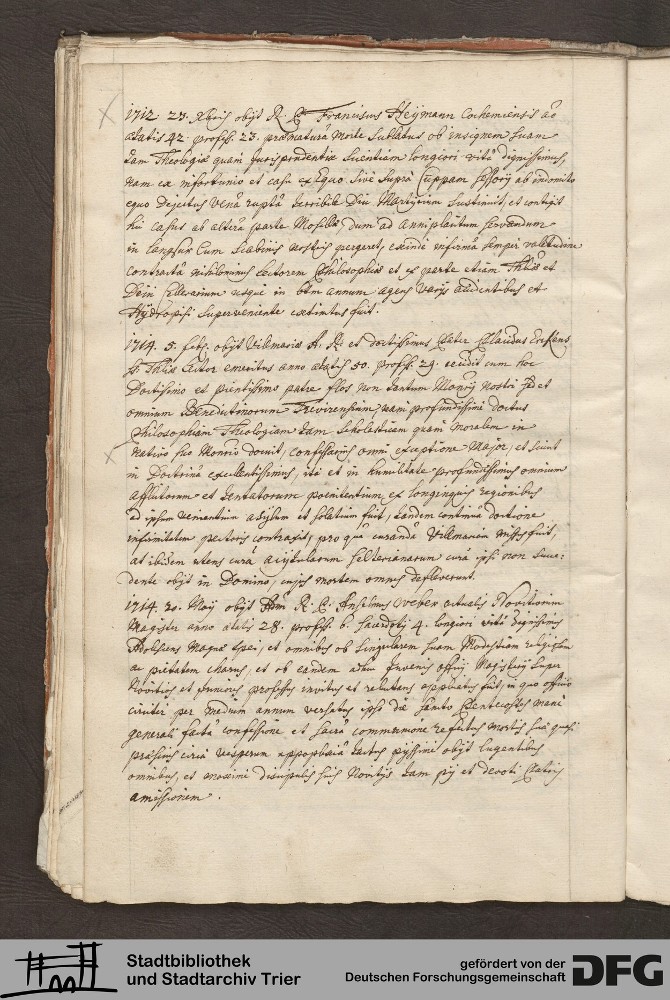 1712. 23. Xbris obijt R. P. Franciscus Heÿmann Cochemiensis ao
ætatis 42. profess. 23. præmatura morte sublatus ob insignem suam
tam Theologiæ quam Jurisprudentiæ scientiam longiori vita dignissimus,
nam ex infortunio et casu ex equo sive supra ab indomito
equo dejectus vena rupta terribile diu Martyrium sustinuit, et contigit
hic casus ab altera parte Mosellæ, dum ad
in Langsur cum scabinis nostris pergeret, exinde infirma semper valetudine
contracta nihilominus Lectorem Philosophiæ et ex parte etiam Thlæ et
Dein Cellerarium usque in annum agens varijs accidentibus et
Hÿdropisi superveniente extinctus fuit.
1714. 5. feb. obijt Villmariæ A. R. et doctissimus Pater Placidus
S. Thlæ Lector emeritus anno ætatis 50. profess. 29. cecidit cum hoc
Doctissimo et pientissimo patre flos non tantum Monrij nostri sed et
omnium Benedictinorum Trevirensium, nam profundissime doctus
Philosophiam Theologiam tam scholasticam quam moralem in
nativo suo Monrio docuit, Confessarius omni exceptione major, et sicut
in Doctrina excellentissimus, ita et in humilitate profundissimus omnium
afflictorum et tentatorum poenitentium ex longinquis regionibus
ad ipsum venientium asylum et solatium fuit, tandem continua doctione
infirmitatem pectoris contraxit, pro qua curanda Villmariam missus fuit,
at ibidem utens cura acidularum selteranarum cura ipsi non succe-
dente obijt in Domino, cujus mortem omnes defleverunt.
1714. 20. Maij obijt R. P. Anselmus Weber actualis Novitiorum
Magister anno ætatis 28. profess. 6. sacerdotij 4. longiori vita dignissimus
Adolescens magnæ spei, et omnibus ob singularem suam modestiam religiosam
ac pietatem charus, et ob eandem adhuc juvenis officij Magisterij super
Novitios et juniores professos invitus et reluctans applicatus fuit, in quo officio
circiter per medium annum versatus ipso die sancto Pentecostes mane
generali facta confessione et sacra communione refectus mortis suæ quasi
præscius circa vesperum appoplexia tactus pijssime obijt lugentibus
omnibus, et maxime discipulis suis Novitijs tam pij et devoti Patris
amissionem.
Stadtbibliothek
und Stadtarchiv Trier
gefördert von der
Deutschen Forschungsgemeinschaft
DFG